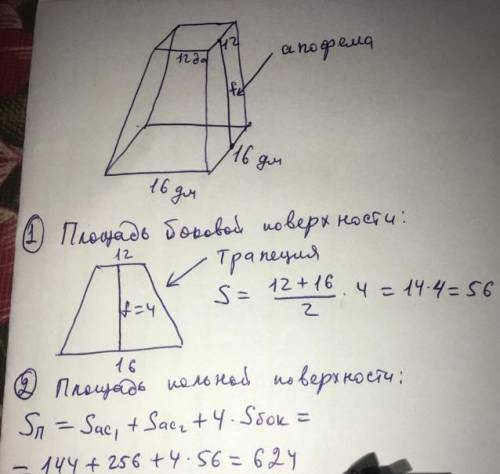 12
12дм
апофема
f
16 дм
16 дм
① Площадь боковой поверхности:
12
трапеция
f=4
S = \frac{12+16}{2} · 4 = 14·4 = 56
16
② Площадь полной поверхности:
Sп = Sос₁ + Sос₂ + 4 · Sбок =
= 144 + 256 + 4 · 56 = 624